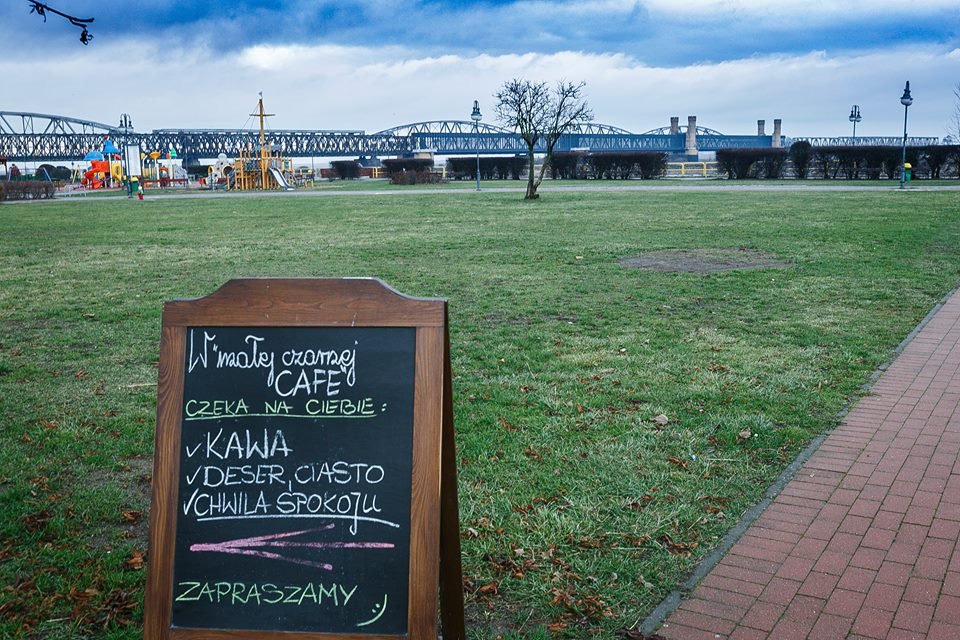 W "małej czarnej
CAFE"
CZEKA NA CIEBIE:
✓ KAWA
✓ DESER, CIASTO
✓ CHWILA SPOKOJU
ZAPRASZAMY :)